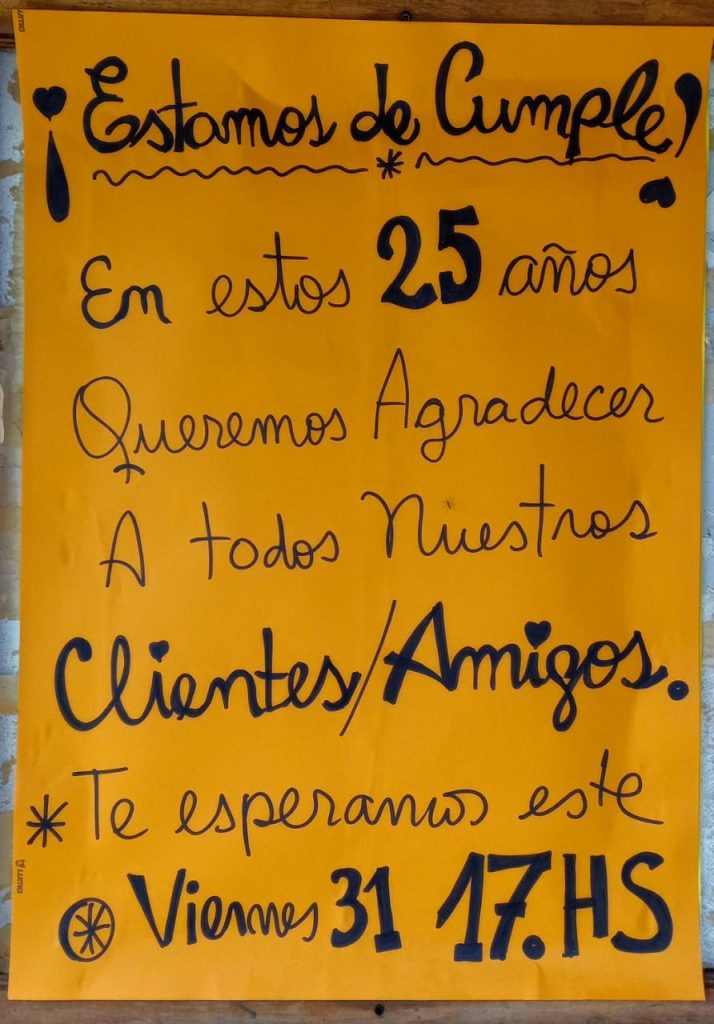 ¡Estamos de Cumple!
En estos 25 años
Queremos Agradecer
A todos Nuestros
Clientes/Amigos.
* Te esperamos este
Viernes 31 17.HS